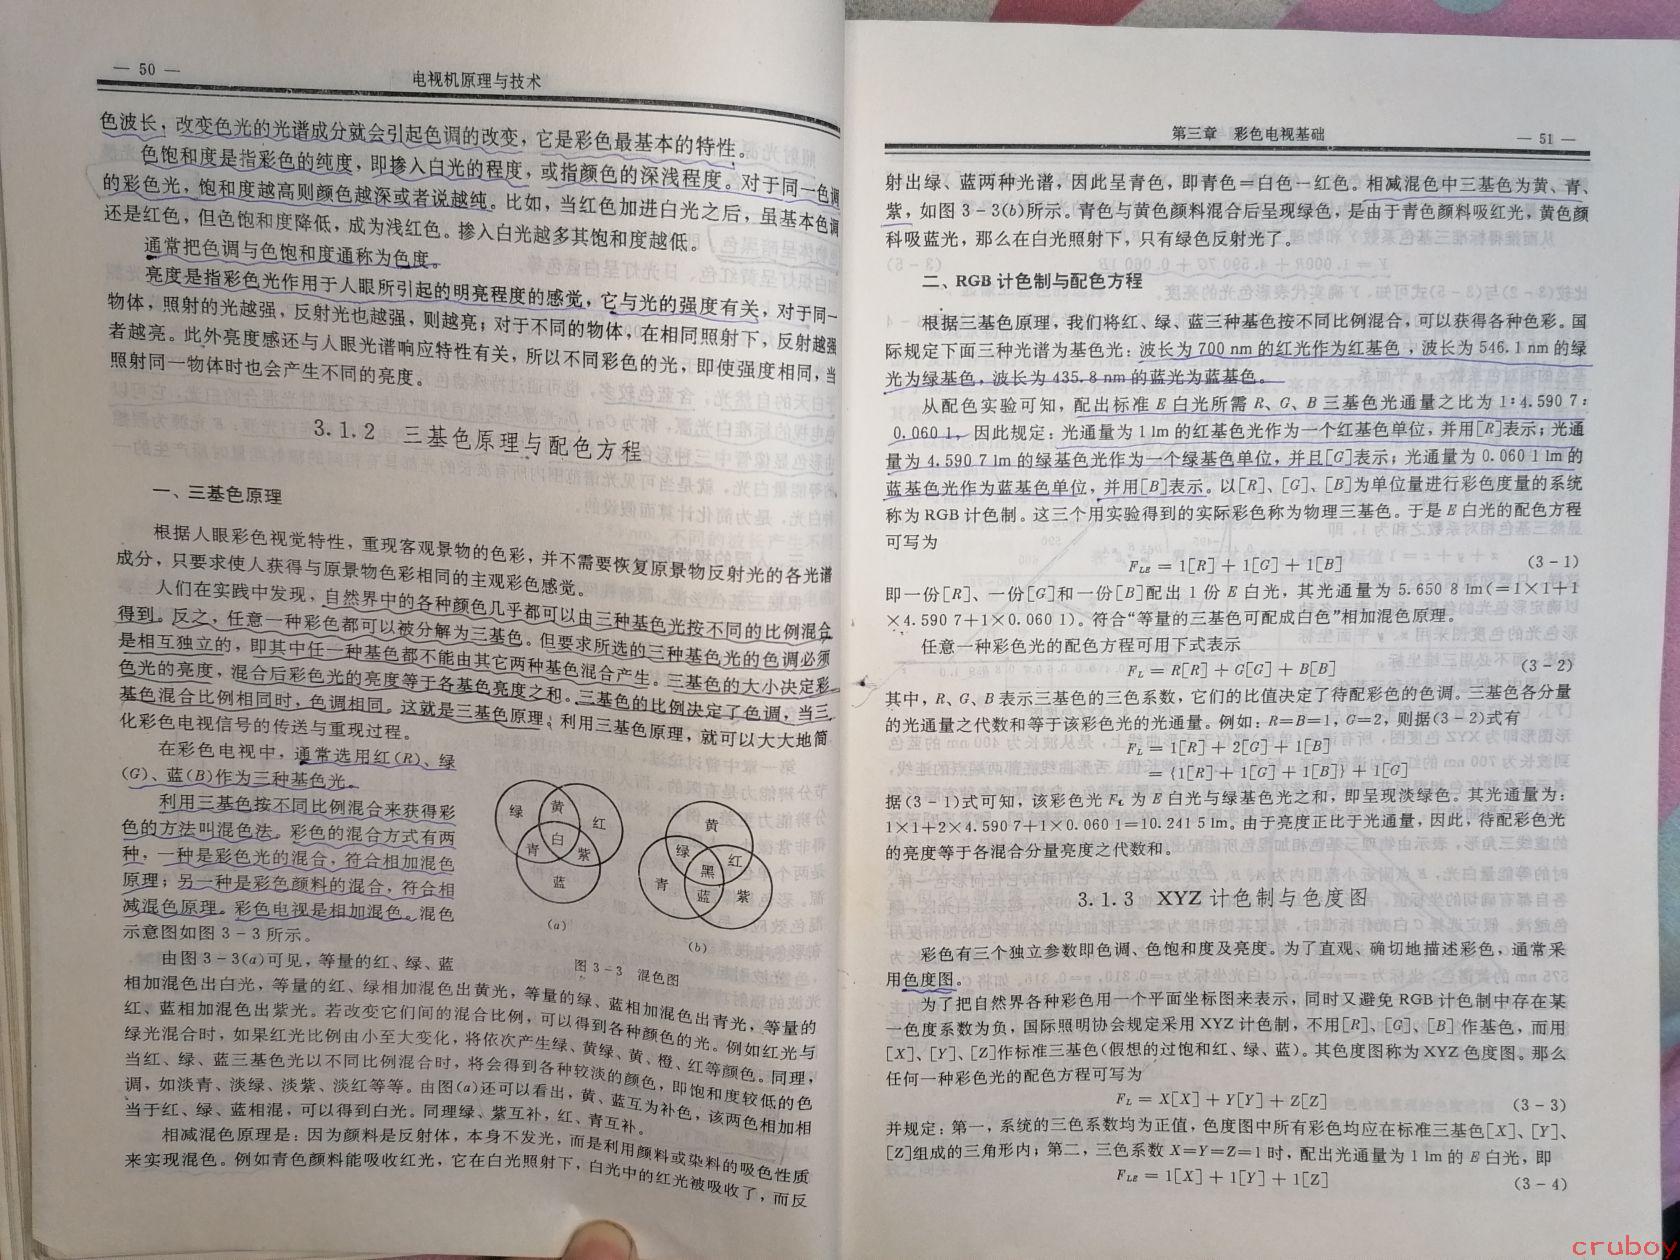 — 50 —
电视机原理与技术
色波长，改变色光的光谱成分就会引起色调的改变，它是彩色最基本的特性。
色饱和度是指彩色的纯度，即掺入白光的程度，或指颜色的深浅程度。对于同一色调
的彩色光，饱和度越高则颜色越深或者说越纯。比如，当红色加进白光之后，虽基本色调
还是红色，但色饱和度降低，成为浅红色。掺入白光越多其饱和度越低。
通常把色调与色饱和度通称为色度。
亮度是指彩色光作用于人眼所引起的明亮程度的感觉，它与光的强度有关，对于同一
物体，照射的光越强，反射光也越强，则越亮；对于不同的物体，在相同照射下，反射越强
者越亮。此外亮度感还与人眼光谱响应特性有关，所以不同彩色的光，即使强度相同，当
照射同一物体时也会产生不同的亮度。
3.1.2 三基色原理与配色方程
一、三基色原理
根据人眼彩色视觉特性，重现客观景物的色彩，并不需要恢复原景物反射光的各光谱
成分，只要求使人获得与原景物色彩相同的主观彩色感觉。
人们在实践中发现，自然界中的各种颜色几乎都可以由三种基色光按不同的比例混合
得到。反之，任意一种彩色都可以被分解为三基色。但要求所选的三种基色光的色调必须
是相互独立的，即其中任一种基色都不能由其它两种基色混合产生。三基色的大小决定彩
色光的亮度，混合后彩色光的亮度等于各基色亮度之和。三基色的比例决定了色调，当三
基色混合比例相同时，色调相同。这就是三基色原理。利用三基色原理，就可以大大地简
化彩色电视信号的传送与重现过程。
在彩色电视中，通常选用红(R)、绿
(G)、蓝(B)作为三种基色光。
利用三基色按不同比例混合来获得彩
色的方法叫混色法。彩色的混合方式有两
种，一种是彩色光的混合，符合相加混色
原理；另一种是彩色颜料的混合，符合相
减混色原理。彩色电视是相加混色。混色
示意图如图 3-3 所示。
绿 黄 红
白
青 紫
蓝
(a)
黄
绿 红
黑
青 蓝 紫
(b)
图 3-3 混色图
由图 3-3(a)可见，等量的红、绿、蓝
相加混色出白光，等量的红、绿相加混色出黄光，等量的绿、蓝相加混色出青光，等量的
红、蓝相加混色出紫光。若改变它们间的混合比例，可以得到各种颜色的光。例如红光与
绿光混合时，如果红光比例由小至大变化，将依次产生绿、黄绿、黄、橙、红等颜色。同理，
当红、绿、蓝三基色光以不同比例混合时，将会得到各种较淡的颜色，即饱和度较低的色
调，如淡青、淡绿、淡紫、淡红等等。由图(a)还可以看出，黄、蓝互为补色，该两色相加相
当于红、绿、蓝相混，可以得到白光。同理绿、紫互补，红、青互补。
相减混色原理是：因为颜料是反射体，本身不发光，而是利用颜料或染料的吸色性质
来实现混色。例如青色颜料能吸收红光，它在白光照射下，白光中的红光被吸收了，而反
第三章 彩色电视基础
— 51 —
射出绿、蓝两种光谱，因此呈青色，即青色＝白色－红色。相减混色中三基色为黄、青、
紫，如图 3-3(b)所示。青色与黄色颜料混合后呈现绿色，是由于青色颜料吸红光，黄色颜
料吸蓝光，那么在白光照射下，只有绿色反射光了。
二、RGB 计色制与配色方程
根据三基色原理，我们将红、绿、蓝三种基色按不同比例混合，可以获得各种色彩。国
际规定下面三种光谱为基色光：波长为 700 nm 的红光作为红基色，波长为 546.1 nm 的绿
光为绿基色，波长为 435.8 nm 的蓝光为蓝基色。
从配色实验可知，配出标准 E 白光所需 R、G、B 三基色光通量之比为 1∶4.590 7∶
0.060 1，因此规定：光通量为 1 lm 的红基色光作为一个红基色单位，并用[R]表示；光通
量为 4.590 7 lm 的绿基色光作为一个绿基色单位，并且[G]表示；光通量为 0.060 1 lm 的
蓝基色光作为蓝基色单位，并用[B]表示。以[R]、[G]、[B]为单位量进行彩色度量的系统
称为 RGB 计色制。这三个用实验得到的实际彩色称为物理三基色。于是 E 白光的配色方程
可写为
F_LE = 1[R] + 1[G] + 1[B] (3-1)
即一份[R]、一份[G]和一份[B]配出 1 份 E 白光，其光通量为 5.650 8 lm(=1×1+1
×4.590 7+1×0.060 1)。符合“等量的三基色可配成白色”相加混色原理。
任意一种彩色光的配色方程可用下式表示
F_L = R[R] + G[G] + B[B] (3-2)
其中，R、G、B 表示三基色的三色系数，它们的比值决定了待配彩色的色调。三基色各分量
的光通量之代数和等于该彩色光的光通量。例如：R=B=1，G=2，则据(3-2)式有
F_L = 1[R] + 2[G] + 1[B]
= {1[R] + 1[G] + 1[B]} + 1[G]
据(3-1)式可知，该彩色光 F_L 为 E 白光与绿基色光之和，即呈现淡绿色。其光通量为：
1×1+2×4.590 7+1×0.060 1=10.241 5 lm。由于亮度正比于光通量，因此，待配彩色光
的亮度等于各混合分量亮度之代数和。
3.1.3 XYZ 计色制与色度图
彩色有三个独立参数即色调、色饱和度及亮度。为了直观、确切地描述彩色，通常采
用色度图。
为了把自然界各种彩色用一个平面坐标图来表示，同时又避免 RGB 计色制中存在某
一色度系数为负，国际照明协会规定采用 XYZ 计色制，不用[R]、[G]、[B]作基色，而用
[X]、[Y]、[Z]作标准三基色(假想的过饱和红、绿、蓝)。其色度图称为 XYZ 色度图。那么
任何一种彩色光的配色方程可写为
F_L = X[X] + Y[Y] + Z[Z] (3-3)
并规定：第一，系统的三色系数均为正值，色度图中所有彩色均应在标准三基色[X]、[Y]、
[Z]组成的三角形内；第二，三色系数 X=Y=Z=1 时，配出光通量为 1 lm 的 E 白光，即
F_LE = 1[X] + 1[Y] + 1[Z] (3-4)
cruboy